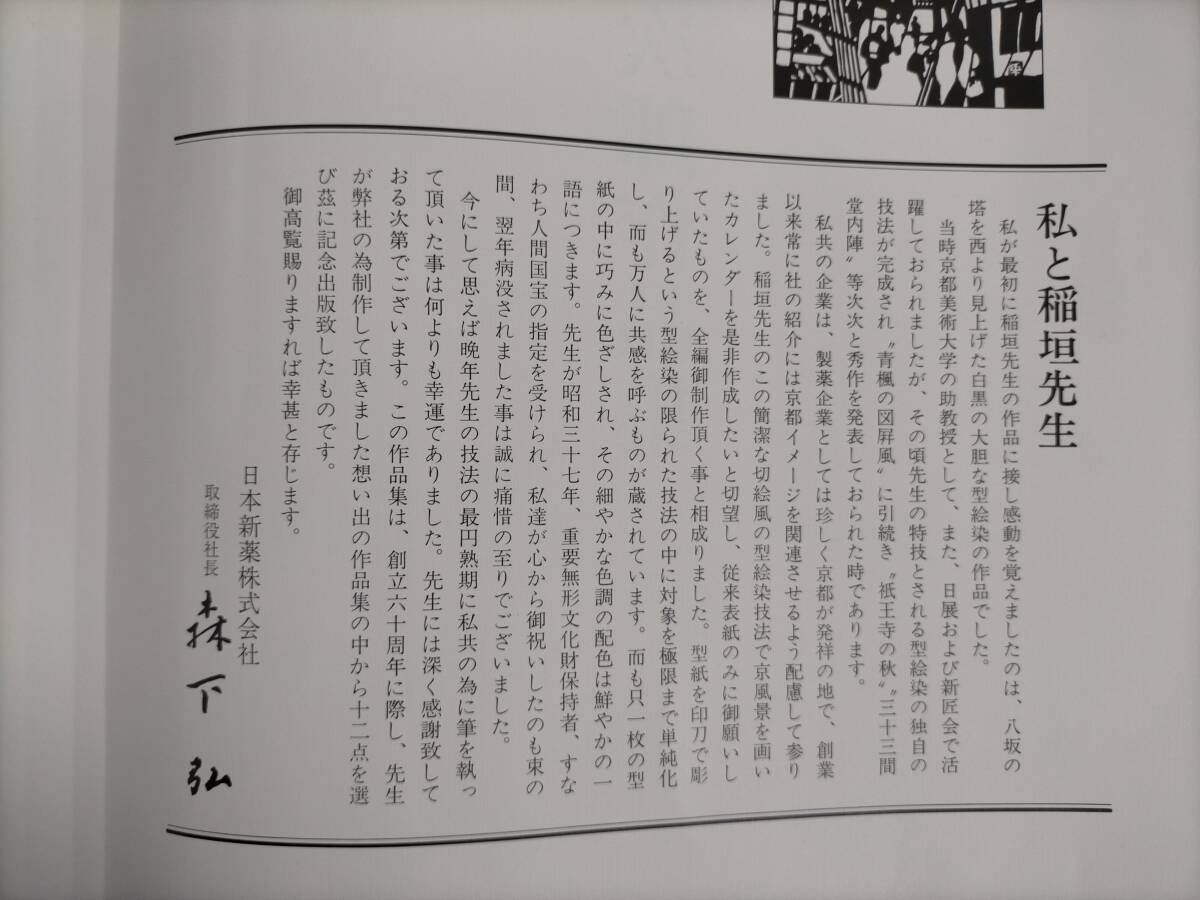 私と稲垣先生
私が最初に稲垣先生の作品に接し感動を覚えましたのは、八坂の
塔を西より見上げた白黒の大胆な型絵染の作品でした。
当時京都美術大学の助教授として、また、日展および新匠会で活
躍しておられましたが、その頃先生の特技とされる型絵染の独自の
技法が完成され〝青楓の図屏風〟に引続き〝祇王寺の秋〟〝三十三間
堂内陣〟等次次と秀作を発表しておられた時であります。
私共の企業は、製薬企業としては珍しく京都が発祥の地で、創業
以来常に社の紹介には京都イメージを関連させるよう配慮して参り
ました。稲垣先生のこの簡潔な切絵風の型絵染技法で京風景を画い
たカレンダーを是非作成したいと切望し、従来表紙のみに御願いし
ていたものを、全編御制作頂く事と相成りました。型紙を印刀で彫
り上げるという型絵染の限られた技法の中に対象を極限まで単純化
し、而も万人に共感を呼ぶものが蔵されています。而も只一枚の型
紙の中に巧みに色ざしされ、その細やかな色調の配色は鮮やかの一
語につきます。先生が昭和三十七年、重要無形文化財保持者、すな
わち人間国宝の指定を受けられ、私達が心から御祝いしたのも束の
間、翌年病没されました事は誠に痛惜の至りでございました。
今にして思えば晩年先生の技法の最円熟期に私共の為に筆を執っ
て頂いた事は何よりも幸運でありました。先生には深く感謝致して
おる次第でございます。この作品集は、創立六十周年に際し、先生
が弊社の為制作して頂きました想い出の作品集の中から十二点を選
び茲に記念出版致したものです。
御高覧賜りますれば幸甚と存じます。
日本新薬株式会社
取締役社長 森下弘